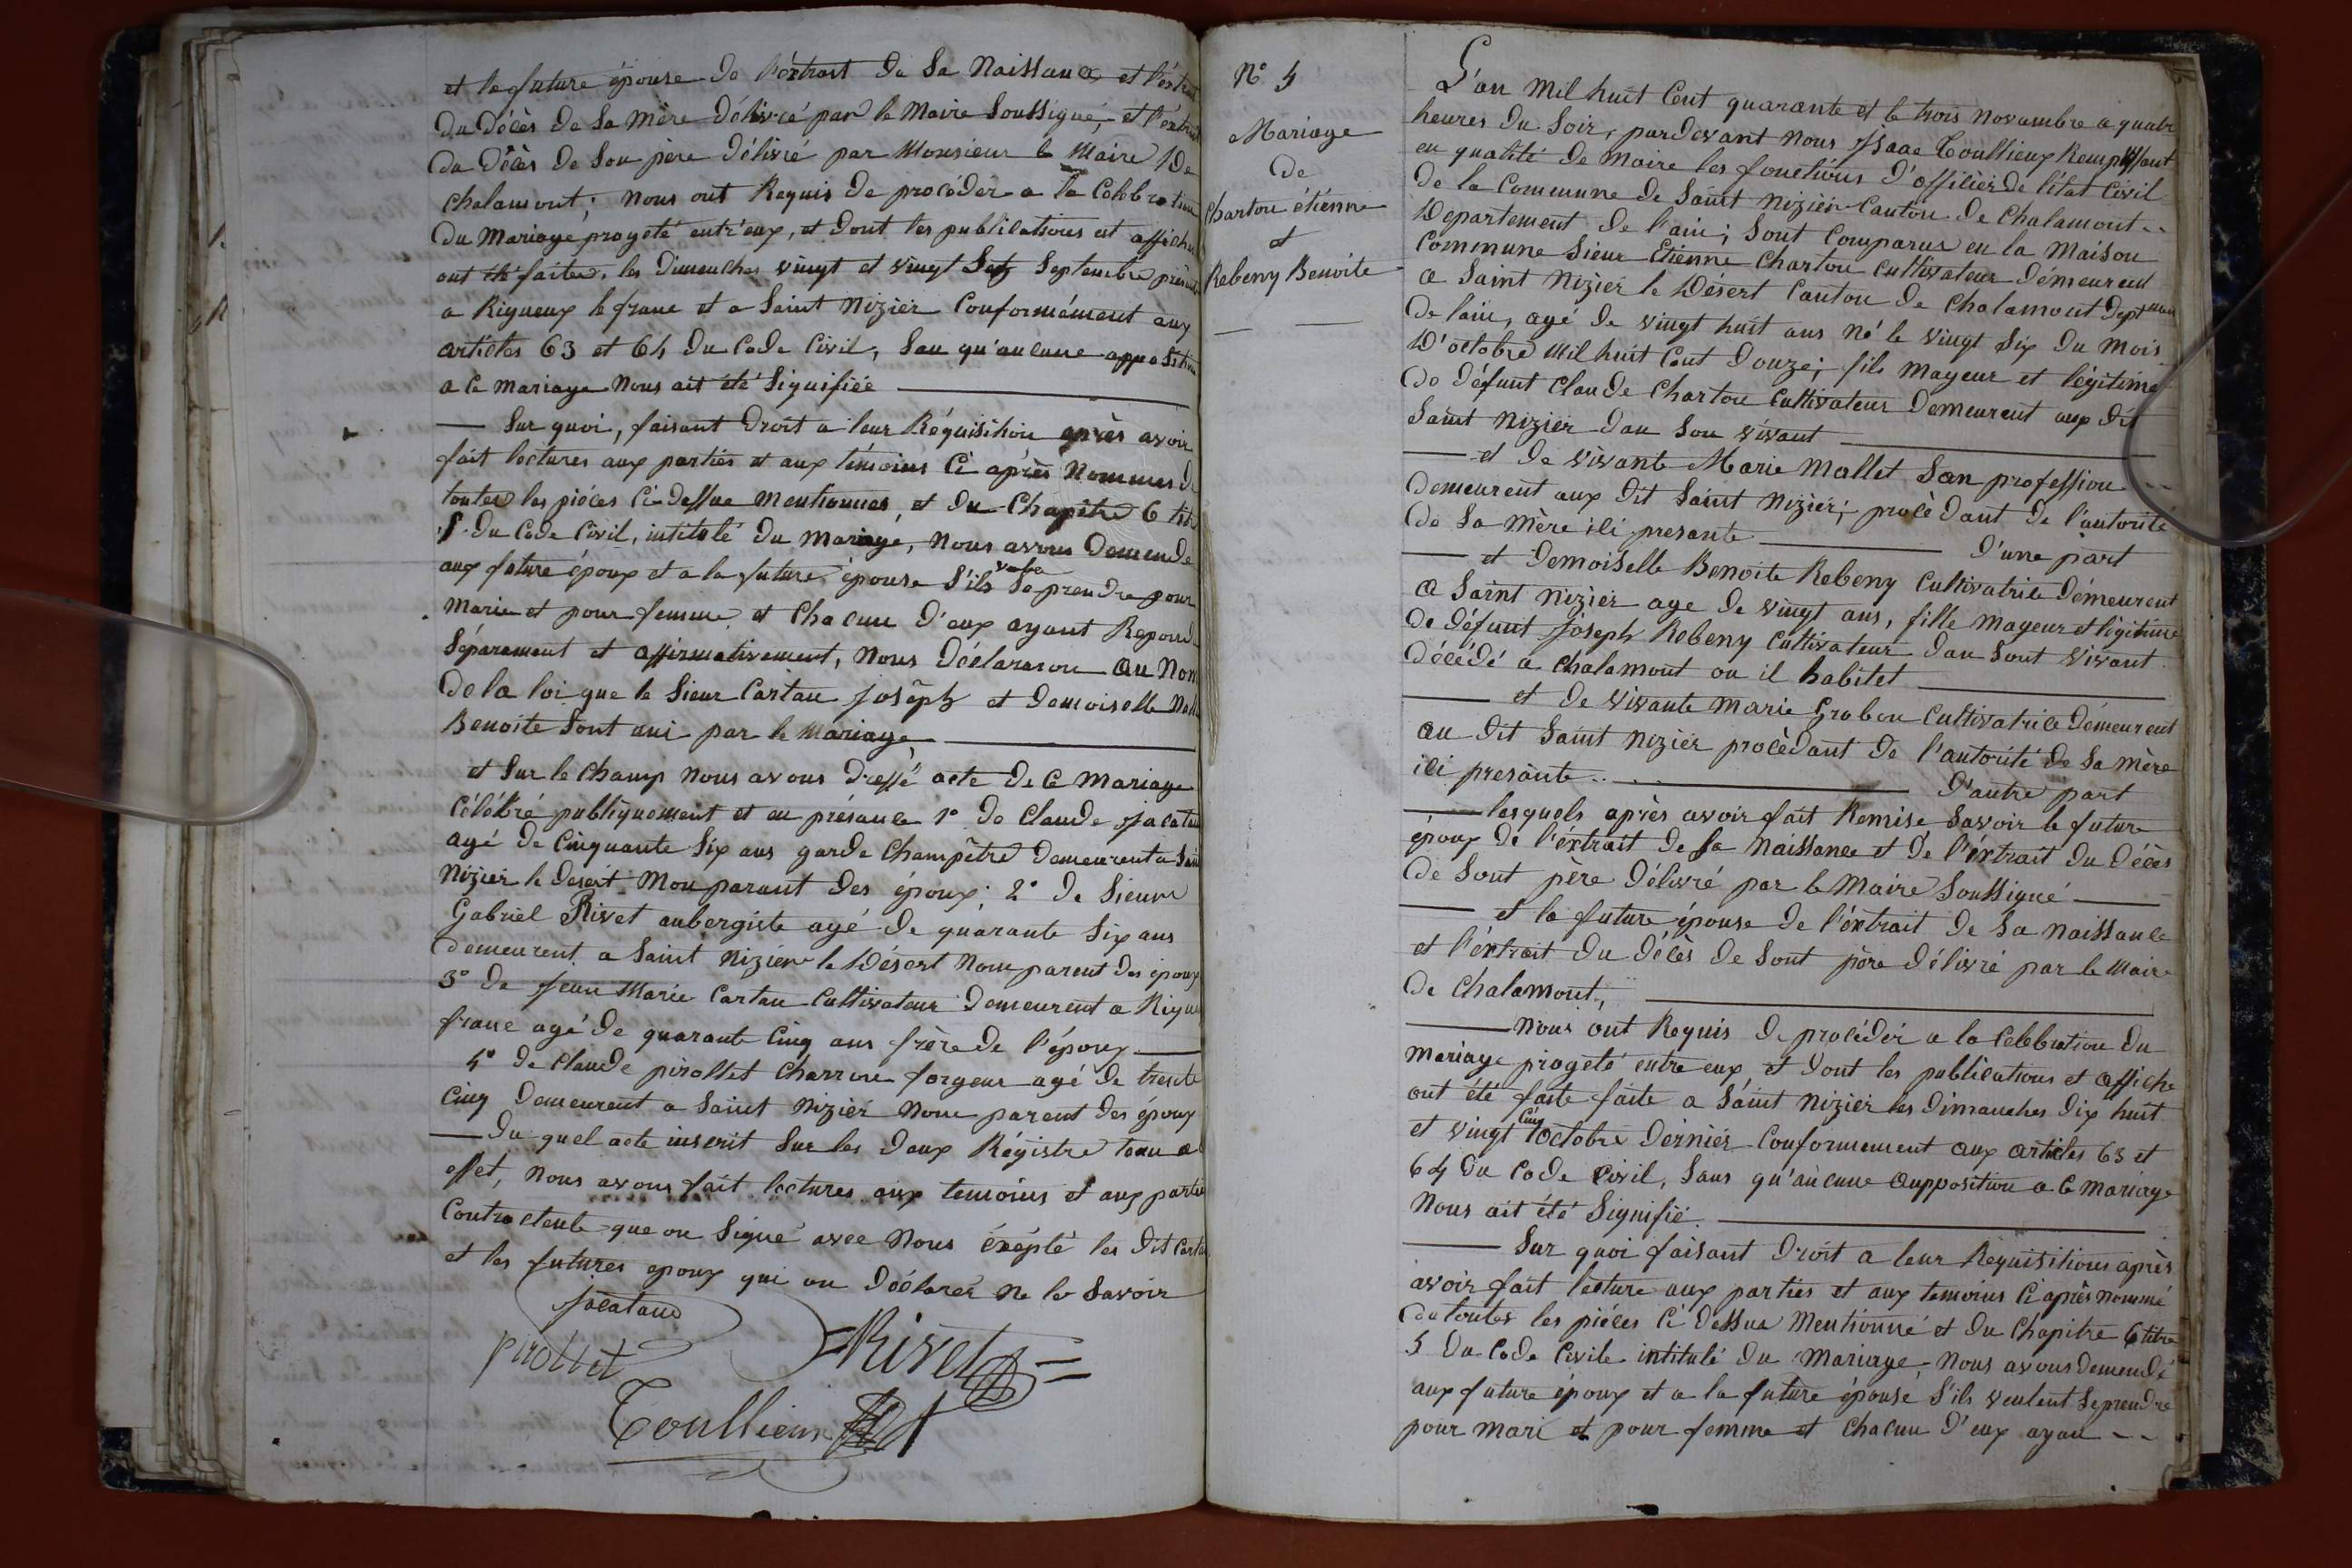 et la future épouse de l'extrait de sa Naissance et l'extrait
du décès de sa mère délivré par le Maire soussigné, et l'extrait
du décès de son père délivré par Monsieur le Maire De
chalamont; nous ont Requis de procéder a la Celebration
du Mariage progeté entr'eux, et dont les publications et affiches
ont été faites, les dimenches vingt et vingt Sept Septembre
a Rigneux le franc et a Saint Nizier Conformément aux
articles 63 et 64 du Code Civil, San qu'aucune apposition
a ce mariage Nous ait été Signifiée
Sur quoi, faisant droit a leur Réquisition après avoir
fait lectures aux parties et aux témoins Ci après Nommes de
toutes les pièces Ci-dessue mentionnes, et du Chapitre 6 titre
5. du Code Civil, intitulé du mariage, nous avons demendé
aux future époux et a la future épouse S'ils Se prendre pour
Marie et pour femme, et Chacun d'eux ayant Repondu
Séparement et affirmativement, Nous Déclarason au Nom
de la loi que le Sieur Cartau joséph et demoiselle
Benoite Sont uni par le Mariage
et Sur le champ nous avons dressé acte de Ce Mariage
Célébré publiquement et en présance 1° de Claude Jacatau
agé de Cinquante Six ans garde Champêtre demeurent a Saint
Nizier le desert Mon parant des époux; 2° de Sieur
Gabriel Rivet aubergiste agé de quarante Six ans
demeurent a Saint Nizier le Désert Nom parent des époux
3° de Jean Marie Cartau Cultivateur demeurent a
franc agé de quarante Cinq ans frère de l'époux
4° de Claude pirollet Charron forgeur agé de trente
Cinq demeurent a Saint Nizier Nom parent des époux
du quel acte inscrit Sur les deux Régistre tenu a
effet, Nous avons fait lectures aux temoins et aux parties
Contractente que on Signé avec Nous éxépté les dit Cartau
et les futures epoux qui on Déclarér ne le Savoir
Jacataud
pirollet Rivet
Toullieux
N° 4
Mariage
de
Charton étienne
et
Rebeny Benoite
L'an Mil huit Cent quarante et le trois Novembre a quatre
heures du Soir, pardevant Nous Isaac Toullieux Remplissant
en qualité de Maire les fonctions d'officier de l'état Civil
de la Commune de Saint Nizier Canton de Chalamont
Département de l'ain; Sont Comparus en la Maison
Commune Sieur Etienne Charton Cultivateur démeurent
a Saint Nizier le Désert Canton de chalamont
de lain, agé de vingt huit ans né le vingt Six du Mois
d'octobre Mil huit Cent douze; fils mageur et légitime
de défunt Claude Charton Cultivateur Demeurent aux dit
Saint Nizier dan Son vivant
et de vivante Marie Mallet San profession
demeurent aux dit Saint Nizier; procèdant de l'autorité
de Sa mère ici presante d'une part
et demoiselle Benoite Rebeny Cultivatrice démeurent
a Saint Nizier age de vingt ans, fille mageur et légitime
de défunt Joseph Rebeny Cultivateur dan Sont vivant
décédé a chalamont ou il habitet
et de vivante Marie Grabou Cultivatrice démeurent
au dit Saint Nizier procèdant de l'autorité de Sa mère
ici presante d'autre part
lesquels après avoir fait Remise Savoir le future
époux de l'éxtrait de Sa Naissance et de l'éxtrait du décès
de Sont père délivré par le Maire Soussigné
et la future épouse de l'éxtrait de Sa naissance
et l'éxtrait du décès de Sont père délivré par le Maire
de chalamont,
Nous ont Requis de procéder a la Celebbration du
mariage progeté entre eux et dont les publications et affiche
ont été faite faite a Saint Nizier les dimanches dix huit
et vingt Cinq octobre dernier Conformement aux articles 63 et
64 du Code Civil, Sans qu'aucune oupposition a Ce mariage
Nous ait été Signifié.
Sur quoi faisant droit a leur Requisitions après
avoir fait lecture aux parties et aux temoins Ci après nommé
de toutes les pièces Ci dessue Mentionné et du Chapitre 6 titre
5 du Code Civile intitulé du Mariage, Nous avous demendé
aux future époux et a la future épouse S'ils veulent Se prendre
pour mari et pour femme et Chacun d'eux ayan